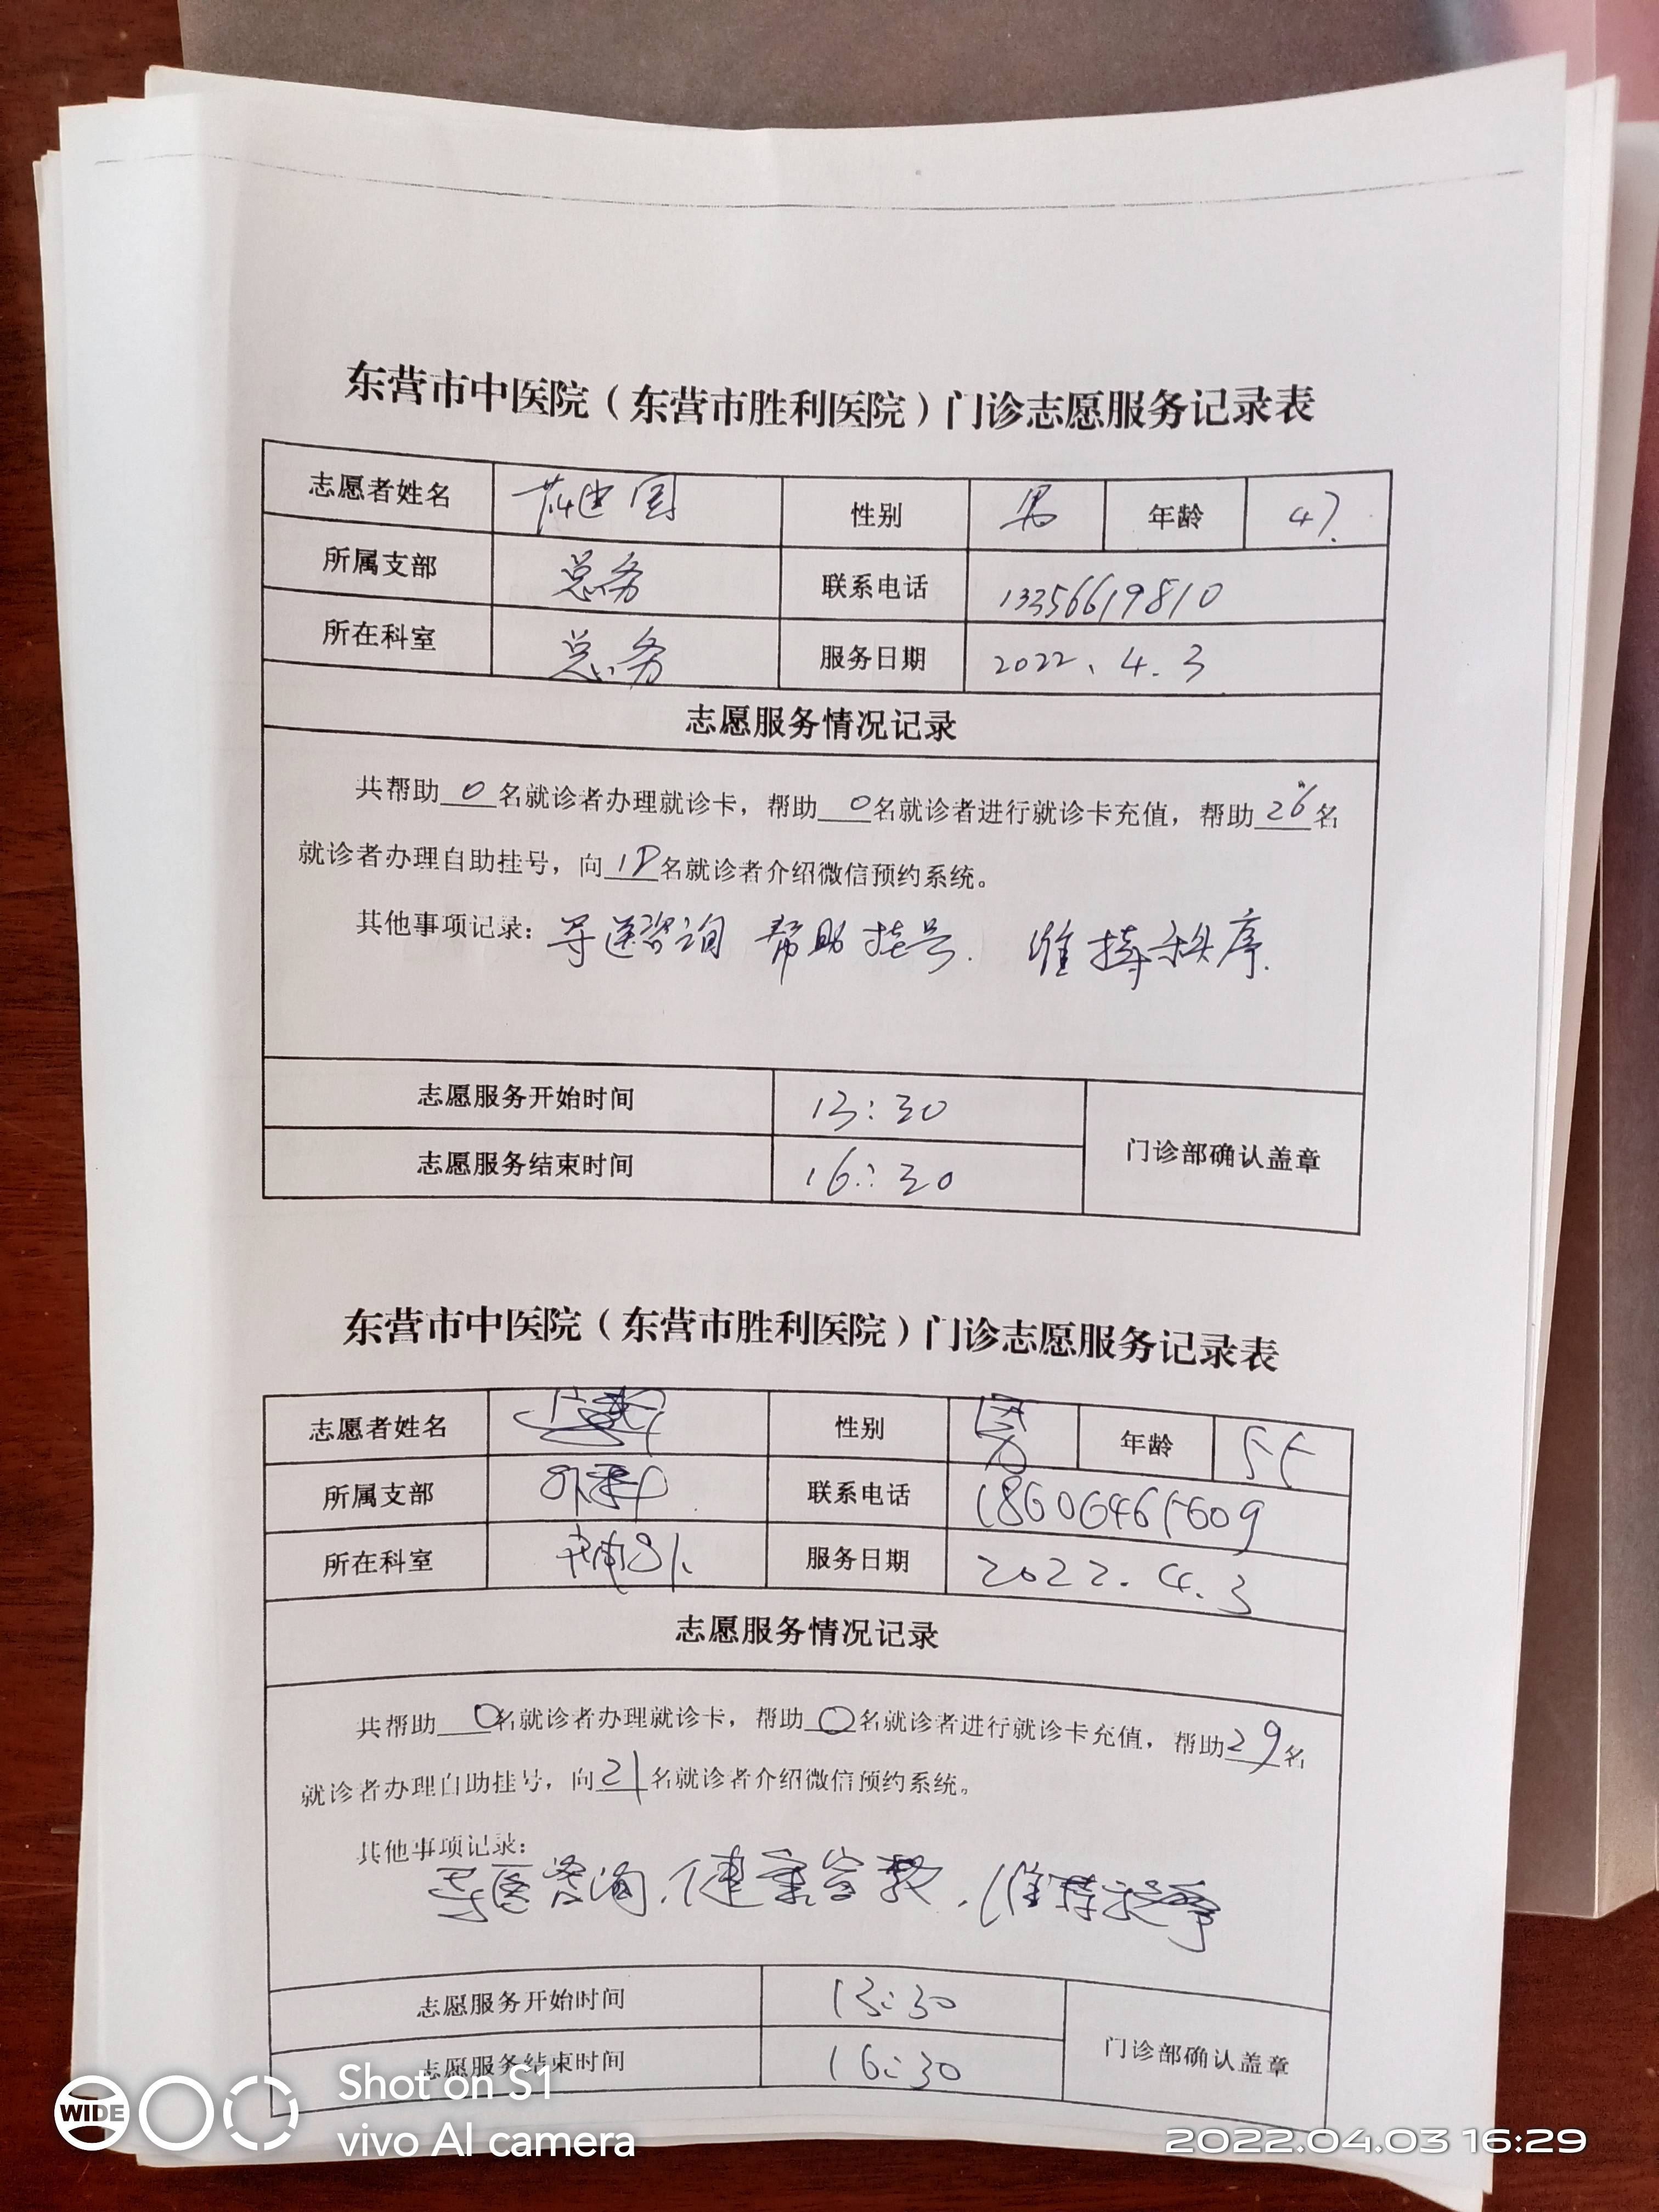 东营市中医院（东营市胜利医院）门诊志愿服务记录表
志愿者姓名 国 性别 男 年龄 47
所属支部 总务 联系电话 13356619810
所在科室 总务 服务日期 2022、4.3
志愿服务情况记录
共帮助0名就诊者办理就诊卡，帮助0名就诊者进行就诊卡充值，帮助26名
就诊者办理自助挂号，向名就诊者介绍微信预约系统。
其他事项记录：导医咨询 帮助挂号. 维持秩序.
志愿服务开始时间 13:30
门诊部确认盖章
志愿服务结束时间 16:30
东营市中医院（东营市胜利医院）门诊志愿服务记录表
志愿者姓名 性别 男 年龄 55
所属支部 外科 联系电话 18606465609
所在科室 服务日期 2022.4.3
志愿服务情况记录
共帮助0名就诊者办理就诊卡，帮助0名就诊者进行就诊卡充值，帮助29名
就诊者办理自助挂号，向21名就诊者介绍微信预约系统。
其他事项记录：
导医咨询.健康宣教.维持秩序
志愿服务开始时间 13:30
门诊部确认盖章
志愿服务结束时间 16:30
WIDE
Shot on S1
vivo AI camera
2022.04.03 16:29